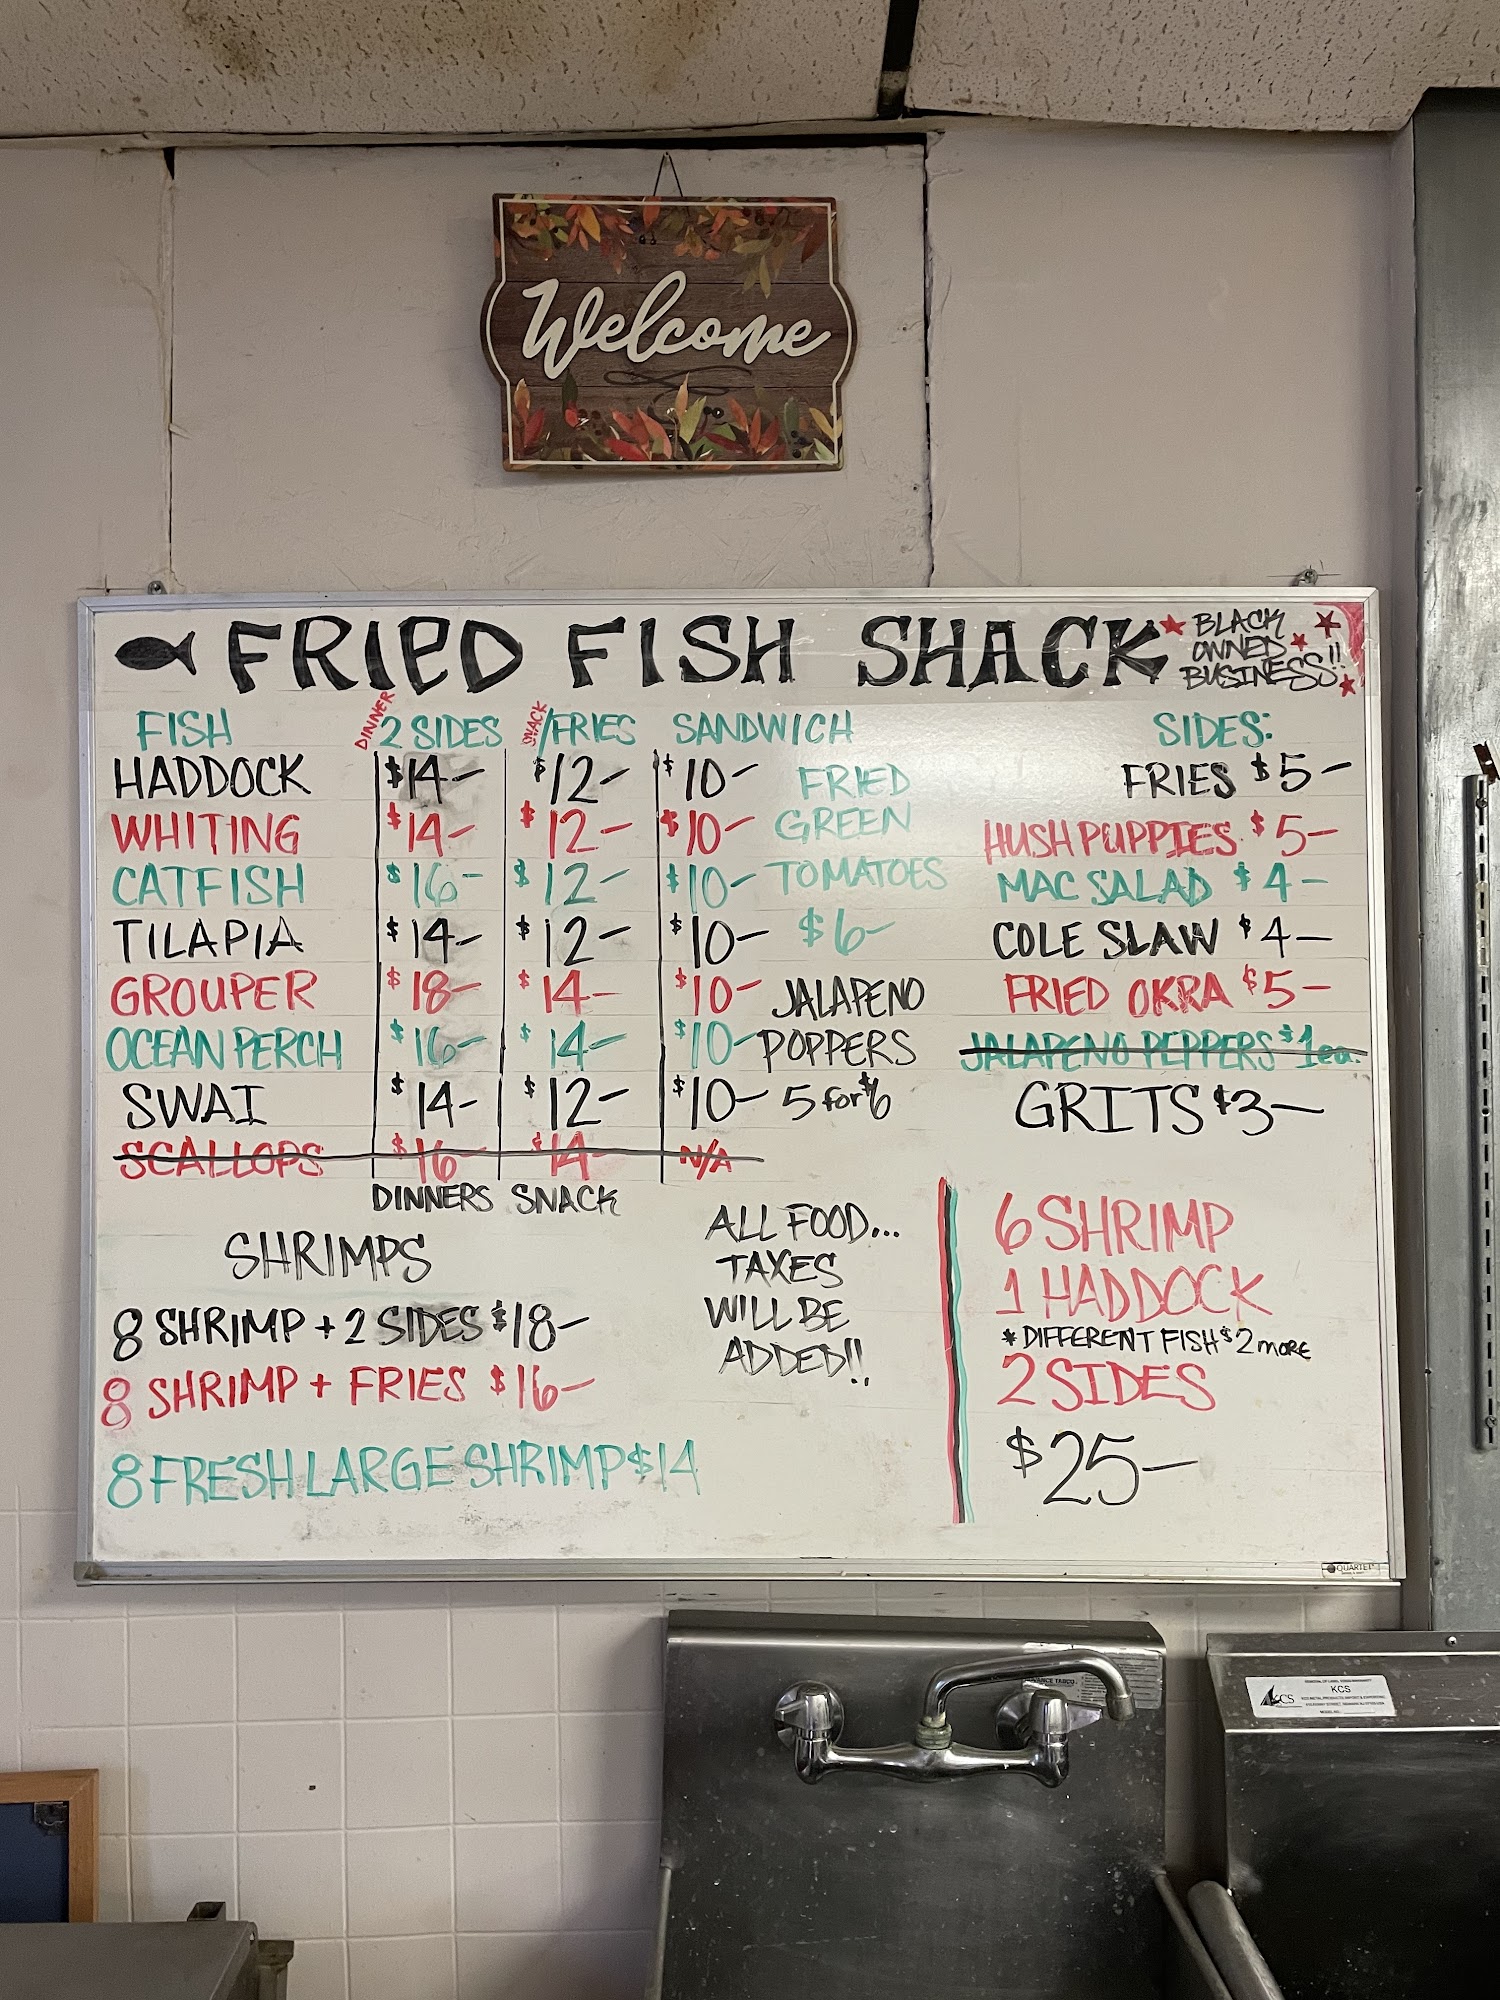 Welcome
FRIED FISH SHACK
BLACK
OWNED
BUSINESS!!
FISH DINNER 2 SIDES SNACK/FRIES SANDWICH
HADDOCK $14- $12- $10-
WHITING $14- $12- $10-
CATFISH $16- $12- $10-
TILAPIA $14- $12- $10-
GROUPER $18- $14- $10-
OCEAN PERCH $16- $14- $10-
SWAI $14- $12- $10-
SCALLOPS $16- $14- N/A
DINNERS SNACK
FRIED
GREEN
TOMATOES
$6-
JALAPENO
POPPERS
5 for $6
SIDES:
FRIES $5-
HUSH PUPPIES $5-
MAC SALAD $4-
COLE SLAW $4-
FRIED OKRA $5-
JALAPENO PEPPERS $1ea.
GRITS $3-
SHRIMPS
8 SHRIMP + 2 SIDES $18-
8 SHRIMP + FRIES $16-
8 FRESH LARGE SHRIMP $14
ALL FOOD...
TAXES
WILL BE
ADDED!!
6 SHRIMP
1 HADDOCK
* DIFFERENT FISH $2 MORE
2 SIDES
$25-
QUARTET
KCS
KCS